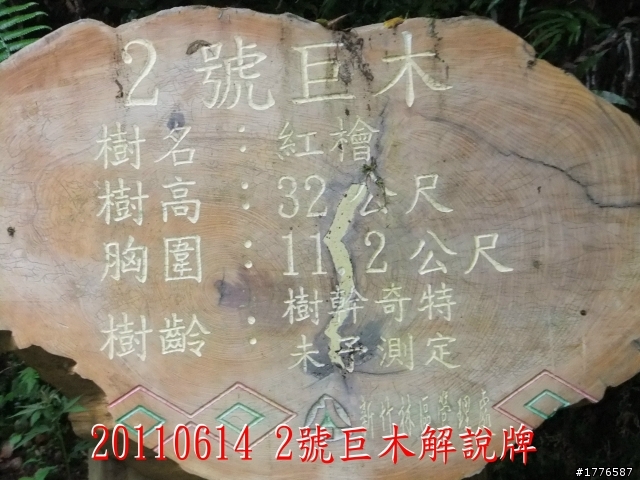 2號巨木
樹名：紅檜
樹高：32公尺
胸圍：11.2公尺
樹齡：樹幹奇特
未予測定
新竹林區管理處
20110614 2號巨木解說牌
#1776587